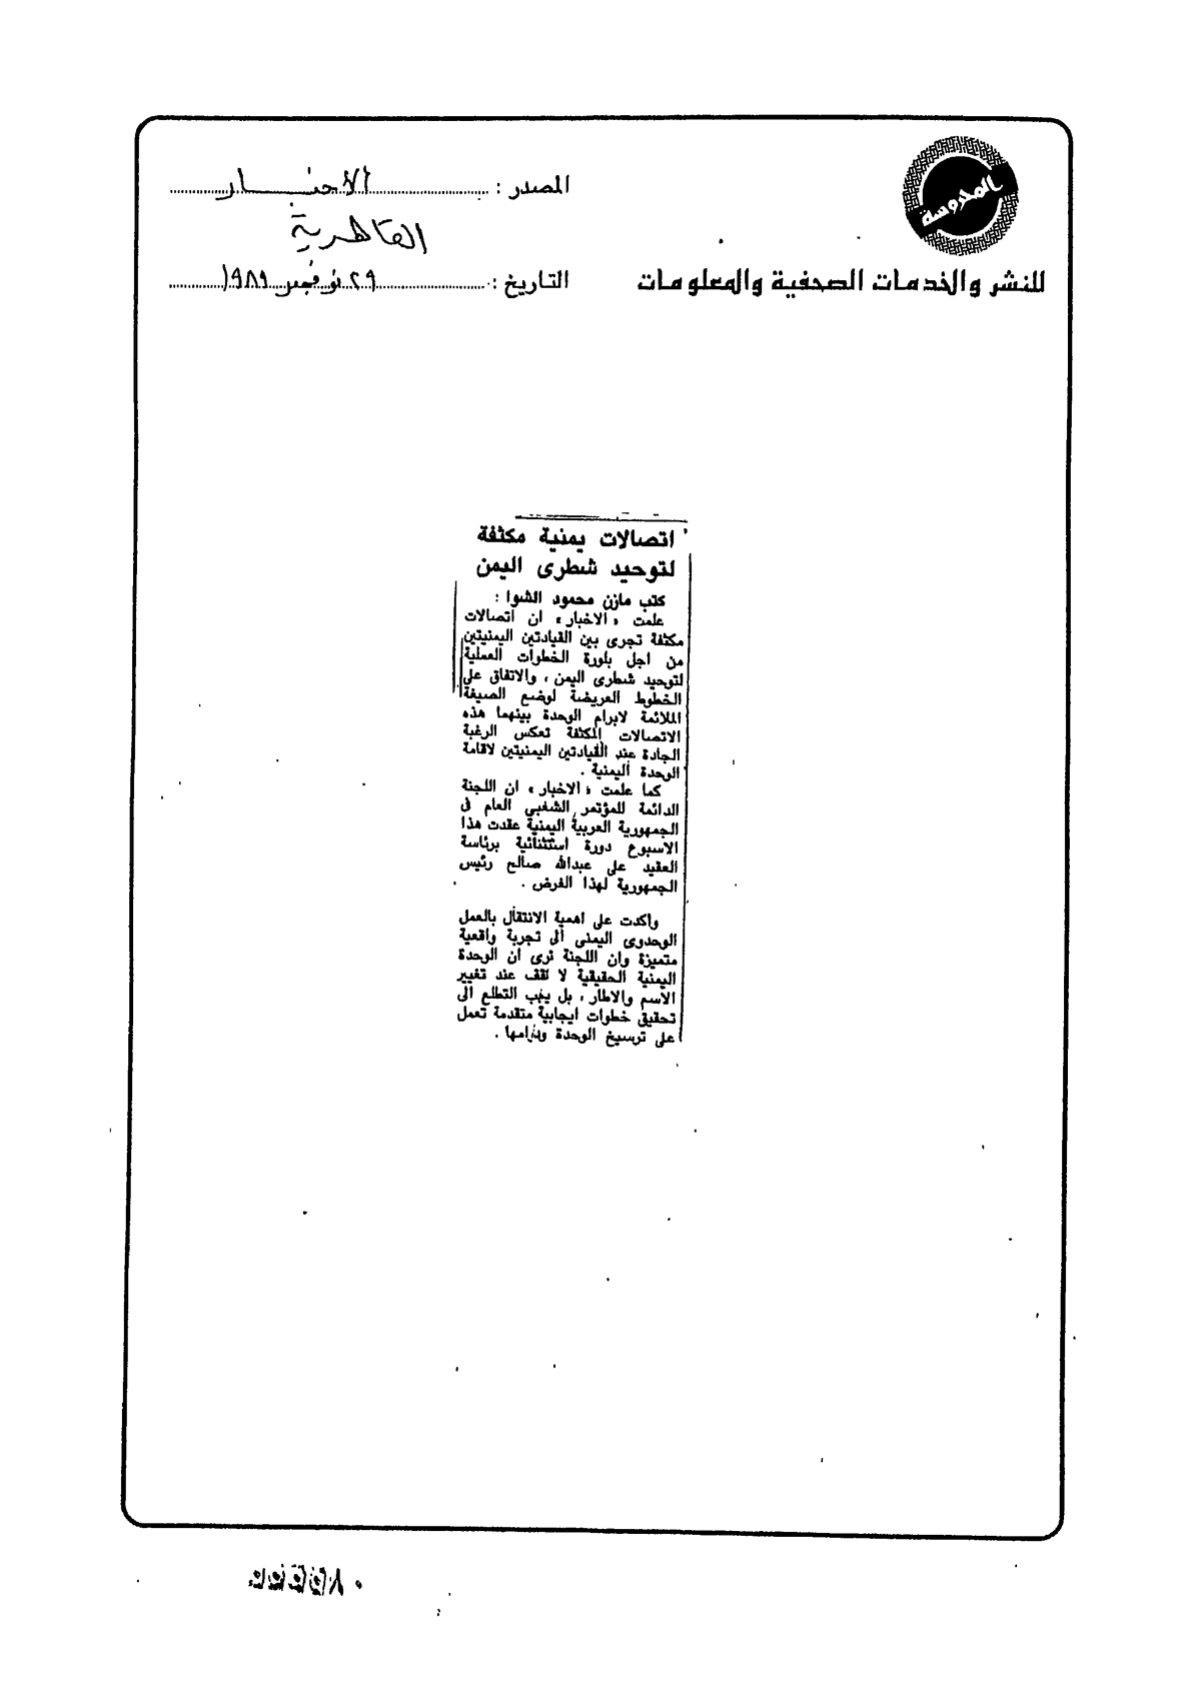 المحروسة
للنشر والخدمات الصحفية والمعلومات
المصدر : الاخبار
القاهرية
التاريخ : ٢٩ نوفمبر ١٩٨٩
اتصالات يمنية مكثفة
لتوحيد شطرى اليمن
كتب مازن محمود الشوا :
علمت « الاخبار » ان اتصالات
مكثفة تجرى بين القيادتين اليمنيتين
من اجل بلورة الخطوات العملية
لتوحيد شطرى اليمن ، والاتفاق على
الخطوط العريضة لوضع الصيغة
الملائمة لابرام الوحدة بينهما هذه
الاتصالات المكثفة تعكس الرغبة
الجادة عند القيادتين اليمنيتين لاقامة
الوحدة اليمنية .
كما علمت « الاخبار » ان اللجنة
الدائمة للمؤتمر الشعبي العام فى
الجمهورية العربية اليمنية عقدت هذا
الاسبوع دورة استثنائية برئاسة
العقيد على عبدالله صالح رئيس
الجمهورية لهذا الغرض .
وأكدت على اهمية الانتقال بالعمل
الوحدوى اليمنى الى تجربة واقعية
متميزة وان اللجنة ترى ان الوحدة
اليمنية الحقيقية لا تقف عند تغيير
الأسم والاطار ، بل يجب التطلع الى
تحقيق خطوات ايجابية متقدمة تعمل
على ترسيخ الوحدة ودوامها .